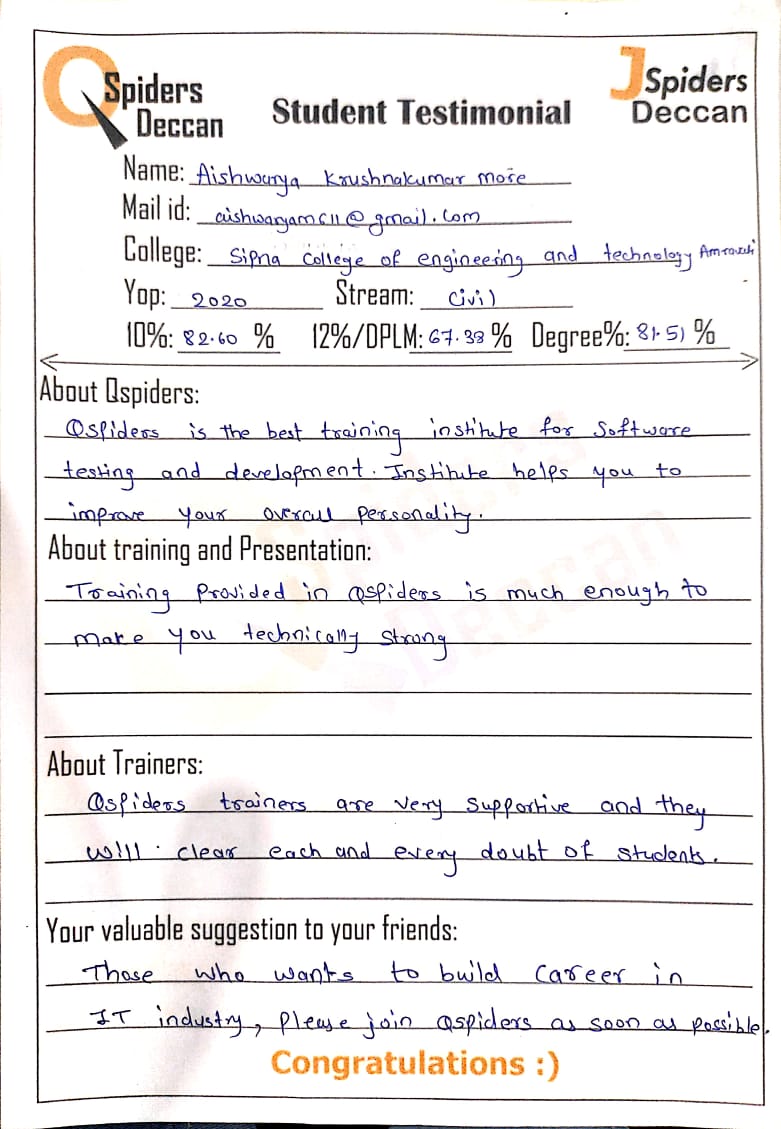 QSpiders Deccan
Student Testimonial
JSpiders Deccan
Name: Aishwarya Krushnakumar more
Mail id: aishwaryamc11@gmail.com
College: Sipna College of engineering and technology Amravati
Yop: 2020 Stream: Civil
10%: 82.60 % 12%/DPLM: 67.38 % Degree%: 81.51 %
About Qspiders:
Qspiders is the best training institute for Software
testing and development. Institute helps you to
improve your overall personality.
About training and Presentation:
Training Provided in Qspiders is much enough to
make you technically strong
About Trainers:
Qspiders trainers are very supportive and they
will clear each and every doubt of students.
Your valuable suggestion to your friends:
Those who wants to build career in
IT industry, please join Qspiders as soon as possible.
Congratulations :)